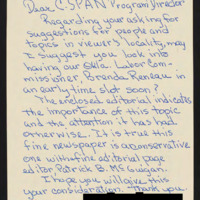 Dear C-SPAN Program Director
Regarding your asking for
suggestions for people and
topics in viewers' locality, may
I suggest you look into
having our Okla Labor Com-
missioner, Brenda Reneau in
an early time slot soon?
The enclosed editorial indicates
the importance of this topic
and the attention it has had
otherwise. It is true this
fine newspaper is a conservative
one with fine editorial page
editor Patrick B. McGuigan.
I hope you will give this
your consideration. Thank you.